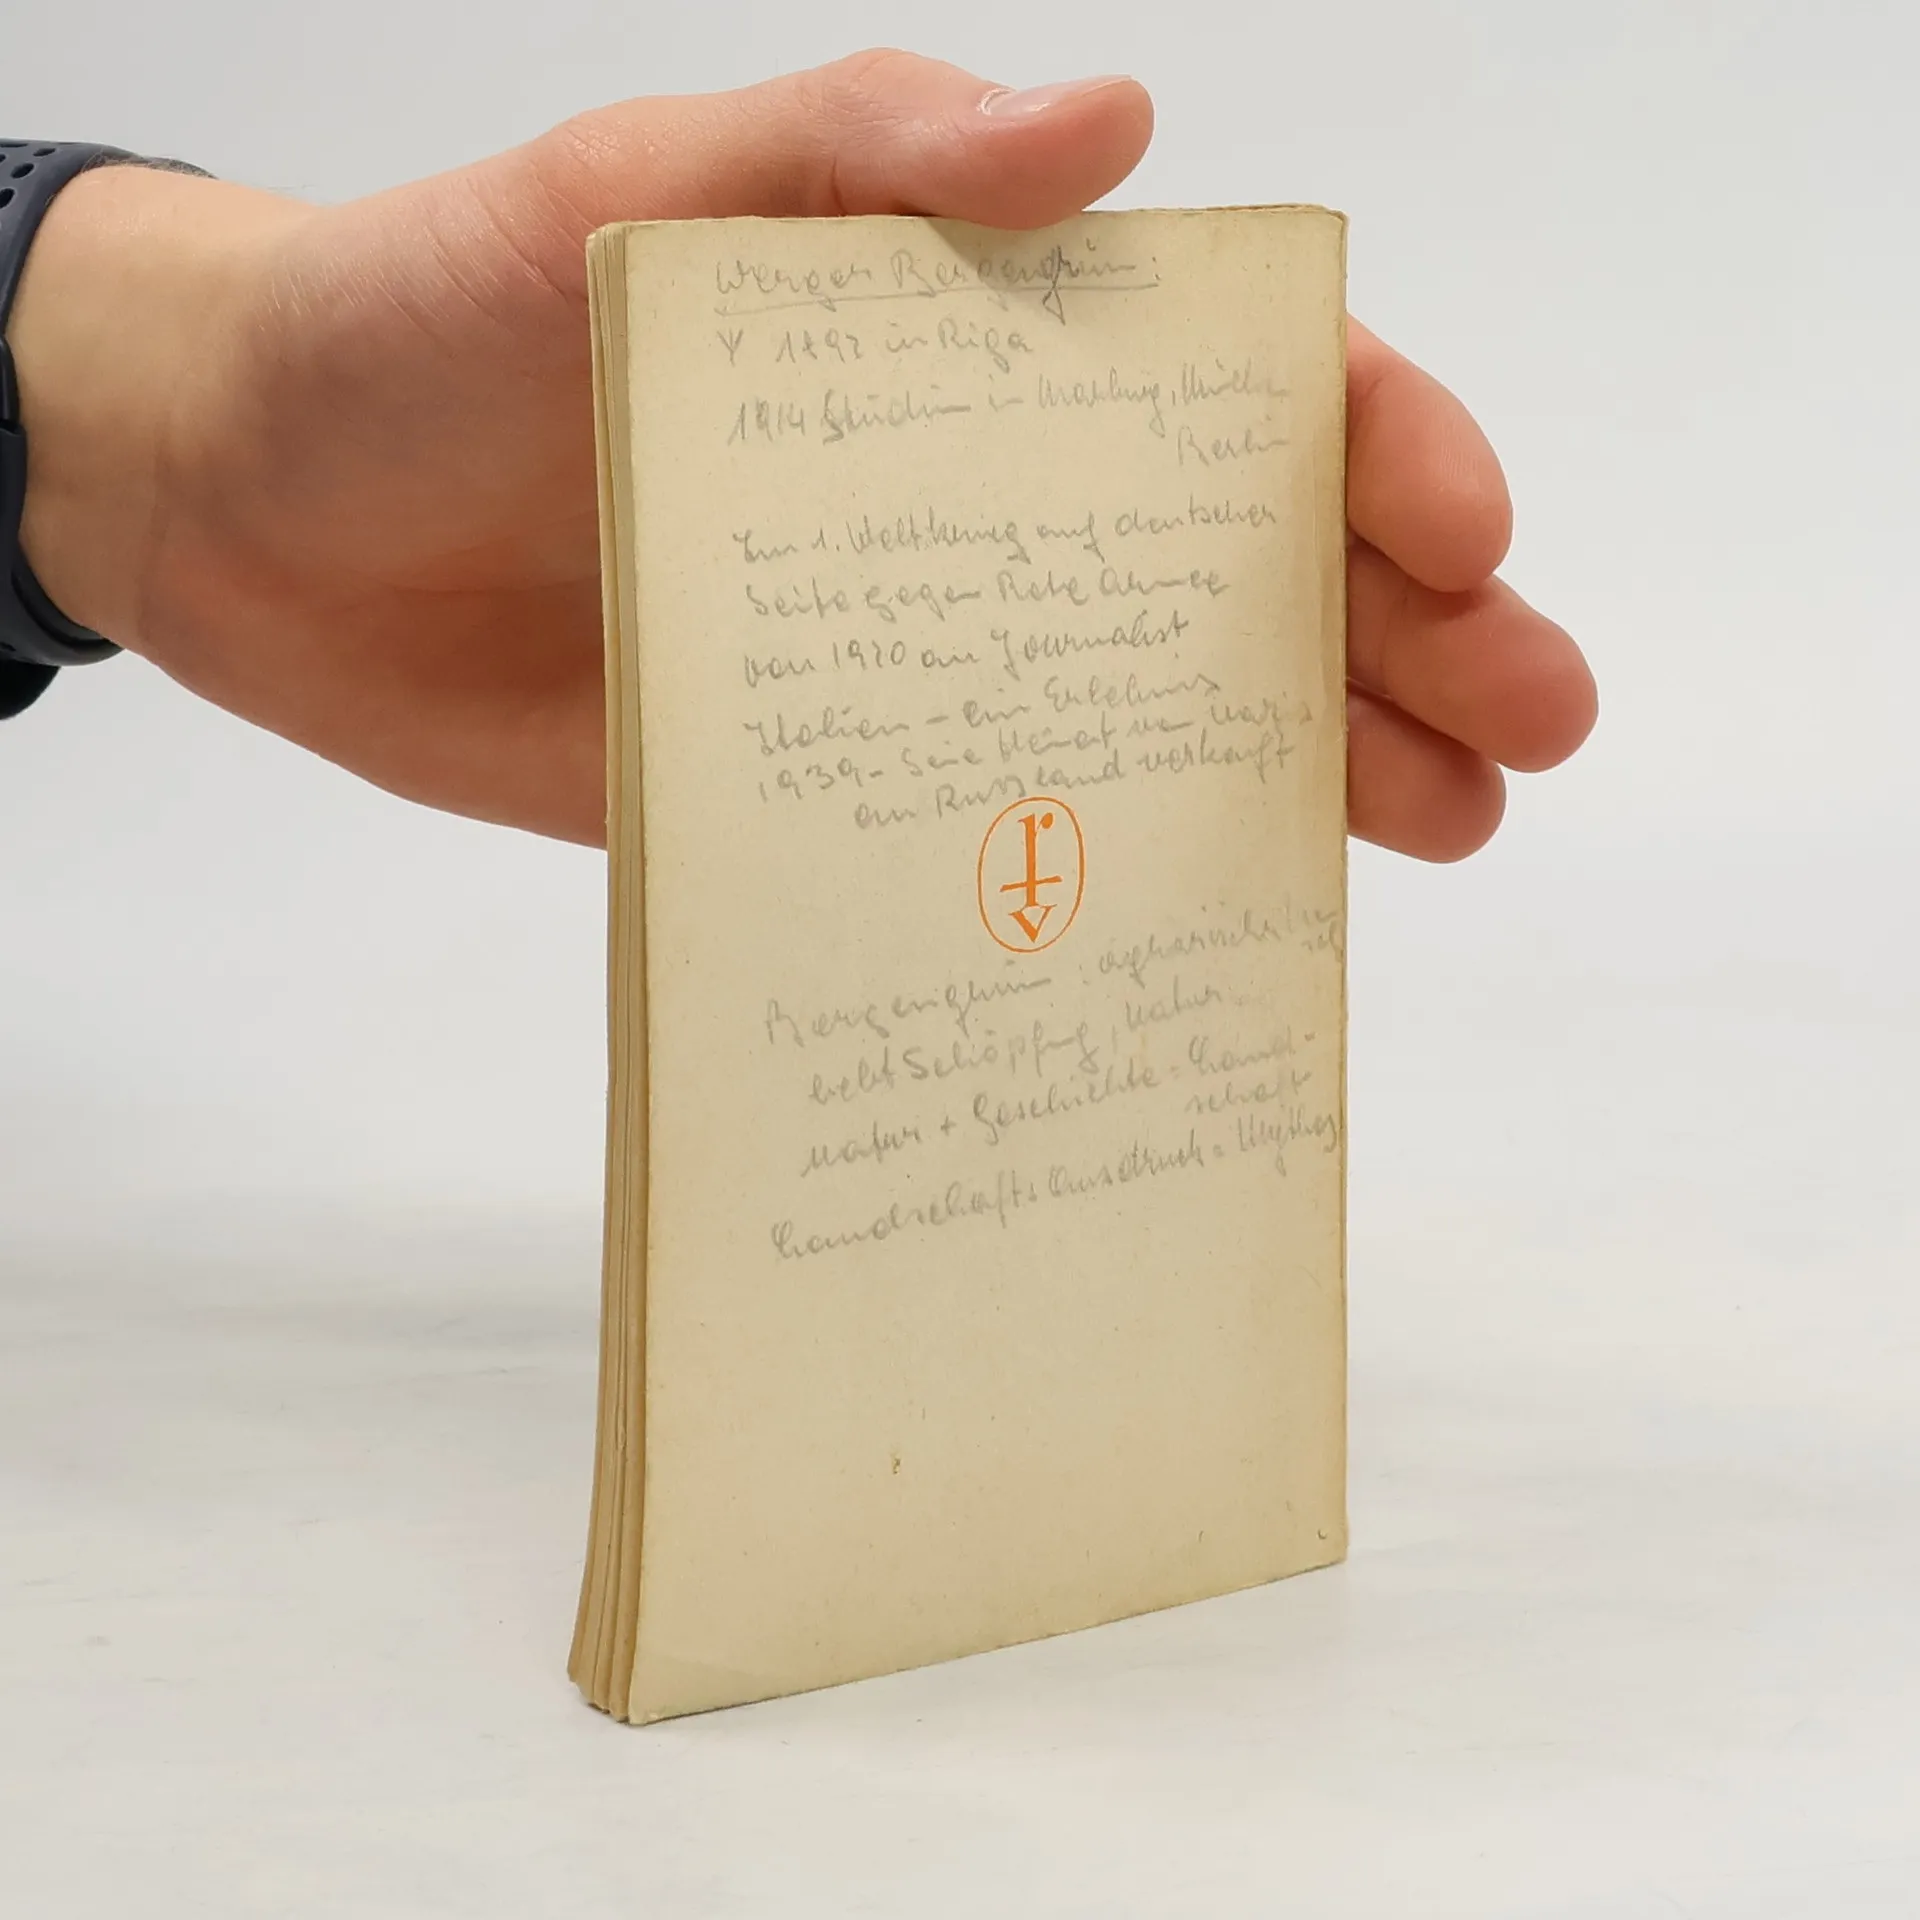 Werner Bergengrün:
1892 in Riga
1914 Studium in Marburg, München
Berlin
Im 1. Weltkrieg auf deutscher
Seite gegen Rote Armee
von 1920 an Journalist
Italien – ein Erlebnis
1939 – Seine Heimat von
an Russland verkauft
r
v
Bergengrün :
liebt Schöpfung, Natur
Natur + Geschichte = Land-
schaft
Landschafts Ausdruck = Mythos